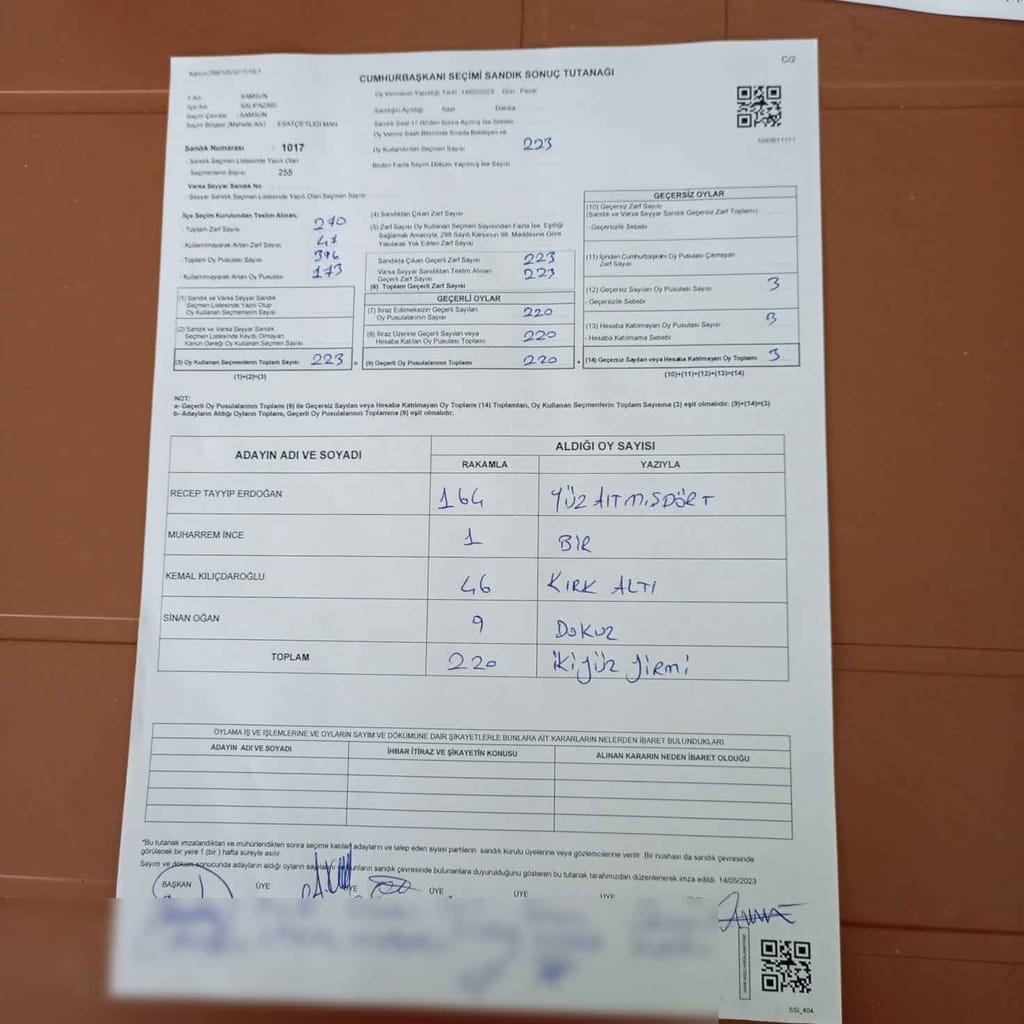 C/2
CUMHURBAŞKANI SEÇİMİ SANDIK SONUÇ TUTANAĞI
İl Adı : SAMSUN
İlçe Adı : SALIPAZARI
Seçim Çevresi : SAMSUN
Seçim Bölgesi (Mahalle Adı) : ESATÇİFTLİĞİ MAH
Oy Vermenin Yapıldığı Tarih 14/05/2023 Gün Pazar
Sandığın Açıldığı Saat Dakika
Sandık Saat 17.00'den Sonra Açılmış İse Sebebi
Oy Verme Saati Bitiminde Sırada Bekleyen ve
Oy Kullandırılan Seçmen Sayısı 223
Birden Fazla Sayım Döküm Yapılmış İse Sayısı
Sandık Numarası : 1017
- Sandık Seçmen Listesinde Yazılı Olan
Seçmenlerin Sayısı : 255
Varsa Seyyar Sandık No
- Seyyar Sandık Seçmen Listesinde Yazılı Olan Seçmen Sayısı
İlçe Seçim Kurulundan Teslim Alınan,
- Toplam Zarf Sayısı 270
- Kullanılmayarak Artan Zarf Sayısı
- Toplam Oy Pusulası Sayısı 396
- Kullanılmayarak Artan Oy Pusulası 173
(1) Sandık ve Varsa Seyyar Sandık
Seçmen Listesinde Yazılı Olup
Oy Kullanan Seçmenlerin Sayısı
(2) Sandık ve Varsa Seyyar Sandık
Seçmen Listesinde Kayıtlı Olmayan
Kanun Gereği Oy Kullanan Seçmen Sayısı
(3) Oy Kullanan Seçmenlerin Toplam Sayısı 223
(1)+(2)=(3)
(4) Sandıktan Çıkan Zarf Sayısı
(5) Zarf Sayısı Oy Kullanan Seçmen Sayısından Fazla İse, Eşitliği
Sağlamak Amacıyla, 298 Sayılı Kanunun 98. Maddesine Göre
Yakılarak Yok Edilen Zarf Sayısı
Sandıkta Çıkan Geçerli Zarf Sayısı 223
Varsa Seyyar Sandıktan Teslim Alınan
Geçerli Zarf Sayısı 223
(6) Toplam Geçerli Zarf Sayısı
GEÇERLİ OYLAR
(7) İtiraz Edilmeksizin Geçerli Sayılan
Oy Pusulalarının Sayısı 220
(8) İtiraz Üzerine Geçerli Sayılan veya
Hesaba Katılan Oy Pusulası Toplamı 220
(9) Geçerli Oy Pusulalarının Toplamı 220
GEÇERSİZ OYLAR
(10) Geçersiz Zarf Sayısı
(Sandık ve Varsa Seyyar Sandık Geçersiz Zarf Toplamı)
- Geçersizlik Sebebi
(11) İçinden Cumhurbaşkanı Oy Pusulası Çıkmayan
Zarf Sayısı
(12) Geçersiz Sayılan Oy Pusulası Sayısı 3
- Geçersizlik Sebebi
(13) Hesaba Katılmayan Oy Pusulası Sayısı
- Hesaba Katılmama Sebebi
(14) Geçersiz Sayılan veya Hesaba Katılmayan Oy Toplamı 3
(10)+(11)+(12)+(13)=(14)
NOT:
a- Geçerli Oy Pusulalarının Toplamı (9) ile Geçersiz Sayılan veya Hesaba Katılmayan Oy Toplamı (14) Toplamları, Oy Kullanan Seçmenlerin Toplam Sayısına (3) eşit olmalıdır. (9)+(14)=(3)
b- Adayların Aldığı Oyların Toplamı, Geçerli Oy Pusulalarının Toplamına (9) eşit olmalıdır.
ADAYIN ADI VE SOYADI ALDIĞI OY SAYISI
RAKAMLA YAZIYLA
RECEP TAYYIP ERDOĞAN 164 YÜZ ALTMIŞDÖRT
MUHARREM İNCE 1 BİR
KEMAL KILIÇDAROĞLU 46 KIRK ALTI
SİNAN OĞAN 9 DOKUZ
TOPLAM 220 İKİ YÜZ YİRMİ
OYLAMA İŞ VE İŞLEMLERİNE VE OYLARIN SAYIM VE DÖKÜMÜNE DAİR ŞİKAYETLERLE BUNLARA AİT KARARLARIN NELERDEN İBARET BULUNDUKLARI
ADAYIN ADI VE SOYADI İHBAR İTİRAZ VE ŞİKAYETİN KONUSU ALINAN KARARIN NEDEN İBARET OLDUĞU
"Bu tutanak imzalandıktan ve mühürlendikten sonra seçime katılan adayların ve talep eden siyasi partilerin sandık kurulu üyelerine veya gözlemcilerine verilir. Bir nüshası da sandık çevresinde
görülecek bir yere 1 (bir) hafta süreyle asılır
Sayım ve döküm sonucunda adayların aldığı oyların bunların sandık çevresinde bulunanlara duyurulduğunu gösteren bu tutanak tarafımızdan düzenlenerek imza edildi. 14/05/2023
BAŞKAN ÜYE ÜYE ÜYE ÜYE ÜYE
SSI_404